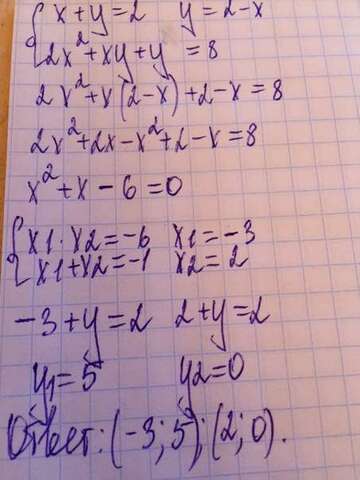 {x+y=2 y=2-x
{2x²+xy+y=8
2x²+x(2-x)+2-x=8
2x²+2x-x²+2-x=8
x²+x-6=0
{x1·x2=-6 x1=-3
{x1+x2=-1 x2=2
-3+y=2 2+y=2
y1=5 y2=0
Ответ: (-3;5);(2;0).